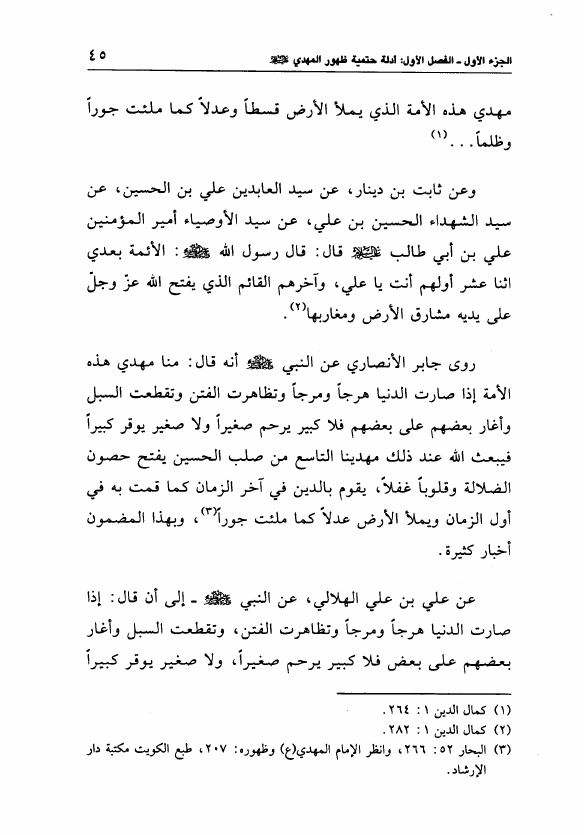 الجزء الأول - الفصل الأول: أدلة حتمية ظهور المهدي ﷺ ٤٥
مهدي هذه الأمة الذي يملأ الأرض قسطاً وعدلاً كما ملئت جوراً
وظلماً...(١)
وعن ثابت بن دينار، عن سيد العابدين علي بن الحسين، عن
سيد الشهداء الحسين بن علي، عن سيد الأوصياء أمير المؤمنين
علي بن أبي طالب عليه السلام قال: قال رسول الله ﷺ: الأئمة بعدي
اثنا عشر أولهم أنت يا علي، وآخرهم القائم الذي يفتح الله عزّ وجلّ
على يديه مشارق الأرض ومغاربها(٢).
روى جابر الأنصاري عن النبي ﷺ أنه قال: منا مهدي هذه
الأمة إذا صارت الدنيا هرجاً ومرجاً وتظاهرت الفتن وتقطعت السبل
وأغار بعضهم على بعضهم فلا كبير يرحم صغيراً ولا صغير يوقر كبيراً
فيبعث الله عند ذلك مهدينا التاسع من صلب الحسين يفتح حصون
الضلالة وقلوباً غفلاً، يقوم بالدين في آخر الزمان كما قمت به في
أول الزمان ويملأ الأرض عدلاً كما ملئت جوراً(٣)، وبهذا المضمون
أخبار كثيرة.
عن علي بن علي الهلالي، عن النبي ﷺ - إلى أن قال: إذا
صارت الدنيا هرجاً ومرجاً وتظاهرت الفتن، وتقطعت السبل وأغار
بعضهم على بعض فلا كبير يرحم صغيراً، ولا صغير يوقر كبيراً
(١) كمال الدين ١: ٢٦٤.
(٢) كمال الدين ١: ٢٨٢.
(٣) البحار ٥٢: ٢٦٦، وانظر الإمام المهدي(ع) وظهوره: ٢٠٧، طبع الكويت مكتبة دار
الإرشاد.